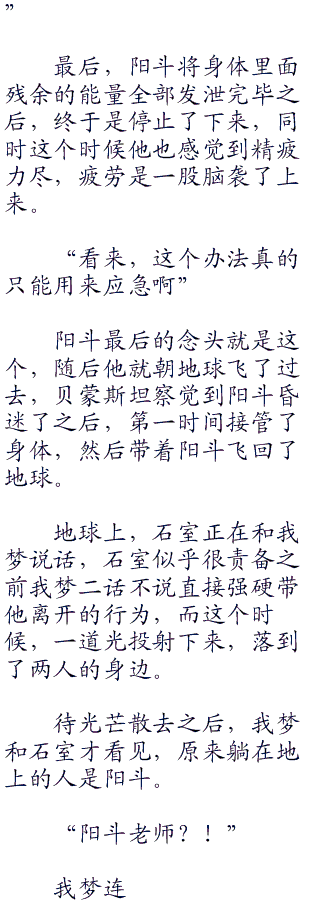 ”
最后，阳斗将身体里面
残余的能量全部发泄完毕之
后，终于是停止了下来，同
时这个时候他也感觉到精疲
力尽，疲劳是一股脑袭了上
来。
“看来，这个办法真的
只能用来应急啊”
阳斗最后的念头就是这
个，随后他就朝地球飞了过
去，贝蒙斯坦察觉到阳斗昏
迷了之后，第一时间接管了
身体，然后带着阳斗飞回了
地球。
地球上，石室正在和我
梦说话，石室似乎很责备之
前我梦二话不说直接强硬带
他离开的行为，而这个时
候，一道光投射下来，落到
了两人的身边。
待光芒散去之后，我梦
和石室才看见，原来躺在地
上的人是阳斗。
“阳斗老师？！”
我梦连